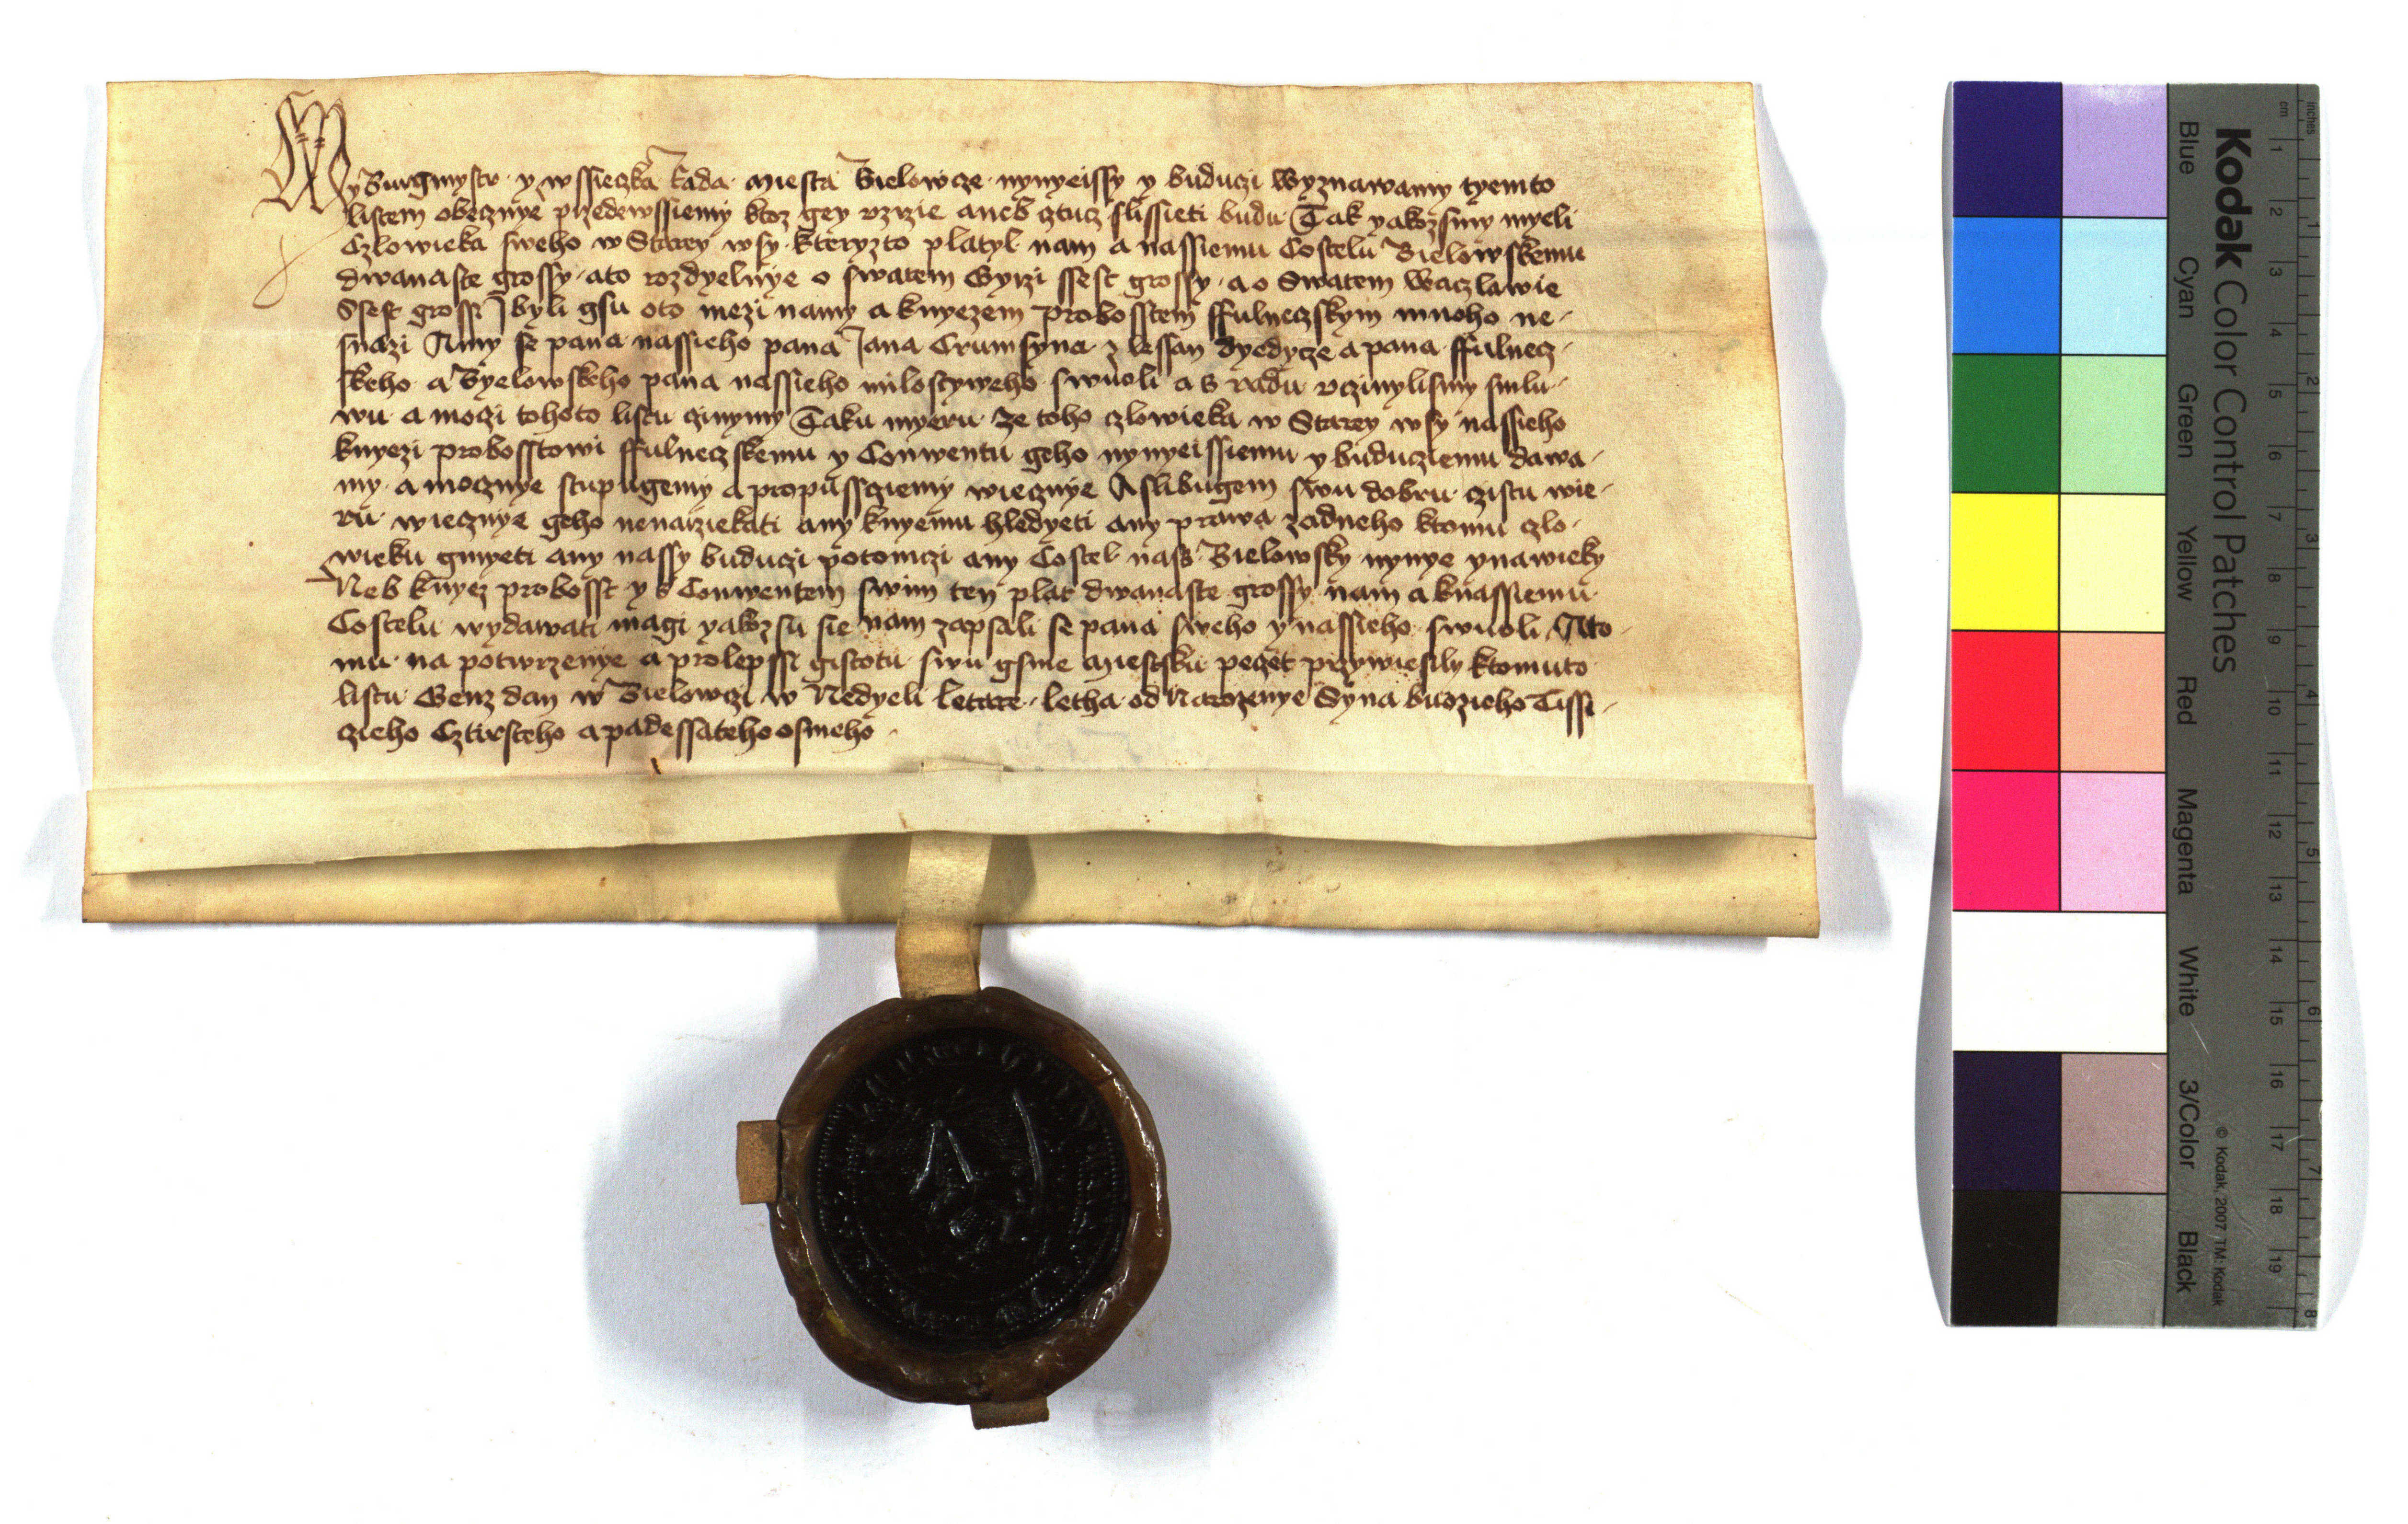 My Burgmystr y wssieczka rada miesta Bielowcze nynyeissy y buduczi Wyznawamy tyemto
listem obecznye przedewssiemy ktoz gey vzrzie aneb cztucz slissieti budu Tak yakozsmy myeli
Czlowieka sweho w Starey wsy kteryzto platyl nam a nassiemu Costelu Bielowskemu
dwanaste grossy ato rozdyelnye o swatem Gyrzi ssest grossy a o Swatem Waczlawie
Ssest grossi J byli gsu oto mezi namy a knyezem Probosstem ffulneczskym mnoho ne-
snazi A my se pana nassieho pana Jana Crumsyna z Lessan dyedycze a pana ffulnecz-
skeho a Byelowskeho pana nassieho milostyweho swuoli a s radu vczinylismy smlu-
wu a moczi tohoto listu czinymy Taku myeru ze toho czlowieka w Starey wsy nassieho
knyezi probosstowi ffulneczskemu y Conwentu geho nynyeissiemu y buducziemu dawa-
my a mocznye stupugemy a propussziemy wiecznye A slibugem swu dobru czistu wie-
ru wiecznye geho nenarziekati any knyemu hledyeti any prawa zadneho ktomu czlo-
wieku gmyeti any nassy buduczi potomczi any Costel nass Bielowsky nynye ynawieky
Neb knyez probosst y s Conwentem swim ten plat dwanaste grossy nam a knassiemu
Costelu wydawati magi yakozsu sie nam zapsali se pana sweho y nassieho swuoli A to-
mu na potwrzenye a prolepssi gistotu swu gsme miestsku peczet przywiesily ktomuto
listu Genz dan w Bielowczi w Nedyeli letare letha od Narozenye Syna buozieho Tissi-
czieho Cztirsteho a padessateho osmeho
Kodak Color Control Patches
© Kodak, 2007 TM: Kodak
Blue Cyan Green Yellow Red Magenta White 3/Color Black
inches 1 2 3 4 5 6 7 8
cm 1 2 3 4 5 6 7 8 9 10 11 12 13 14 15 16 17 18 19